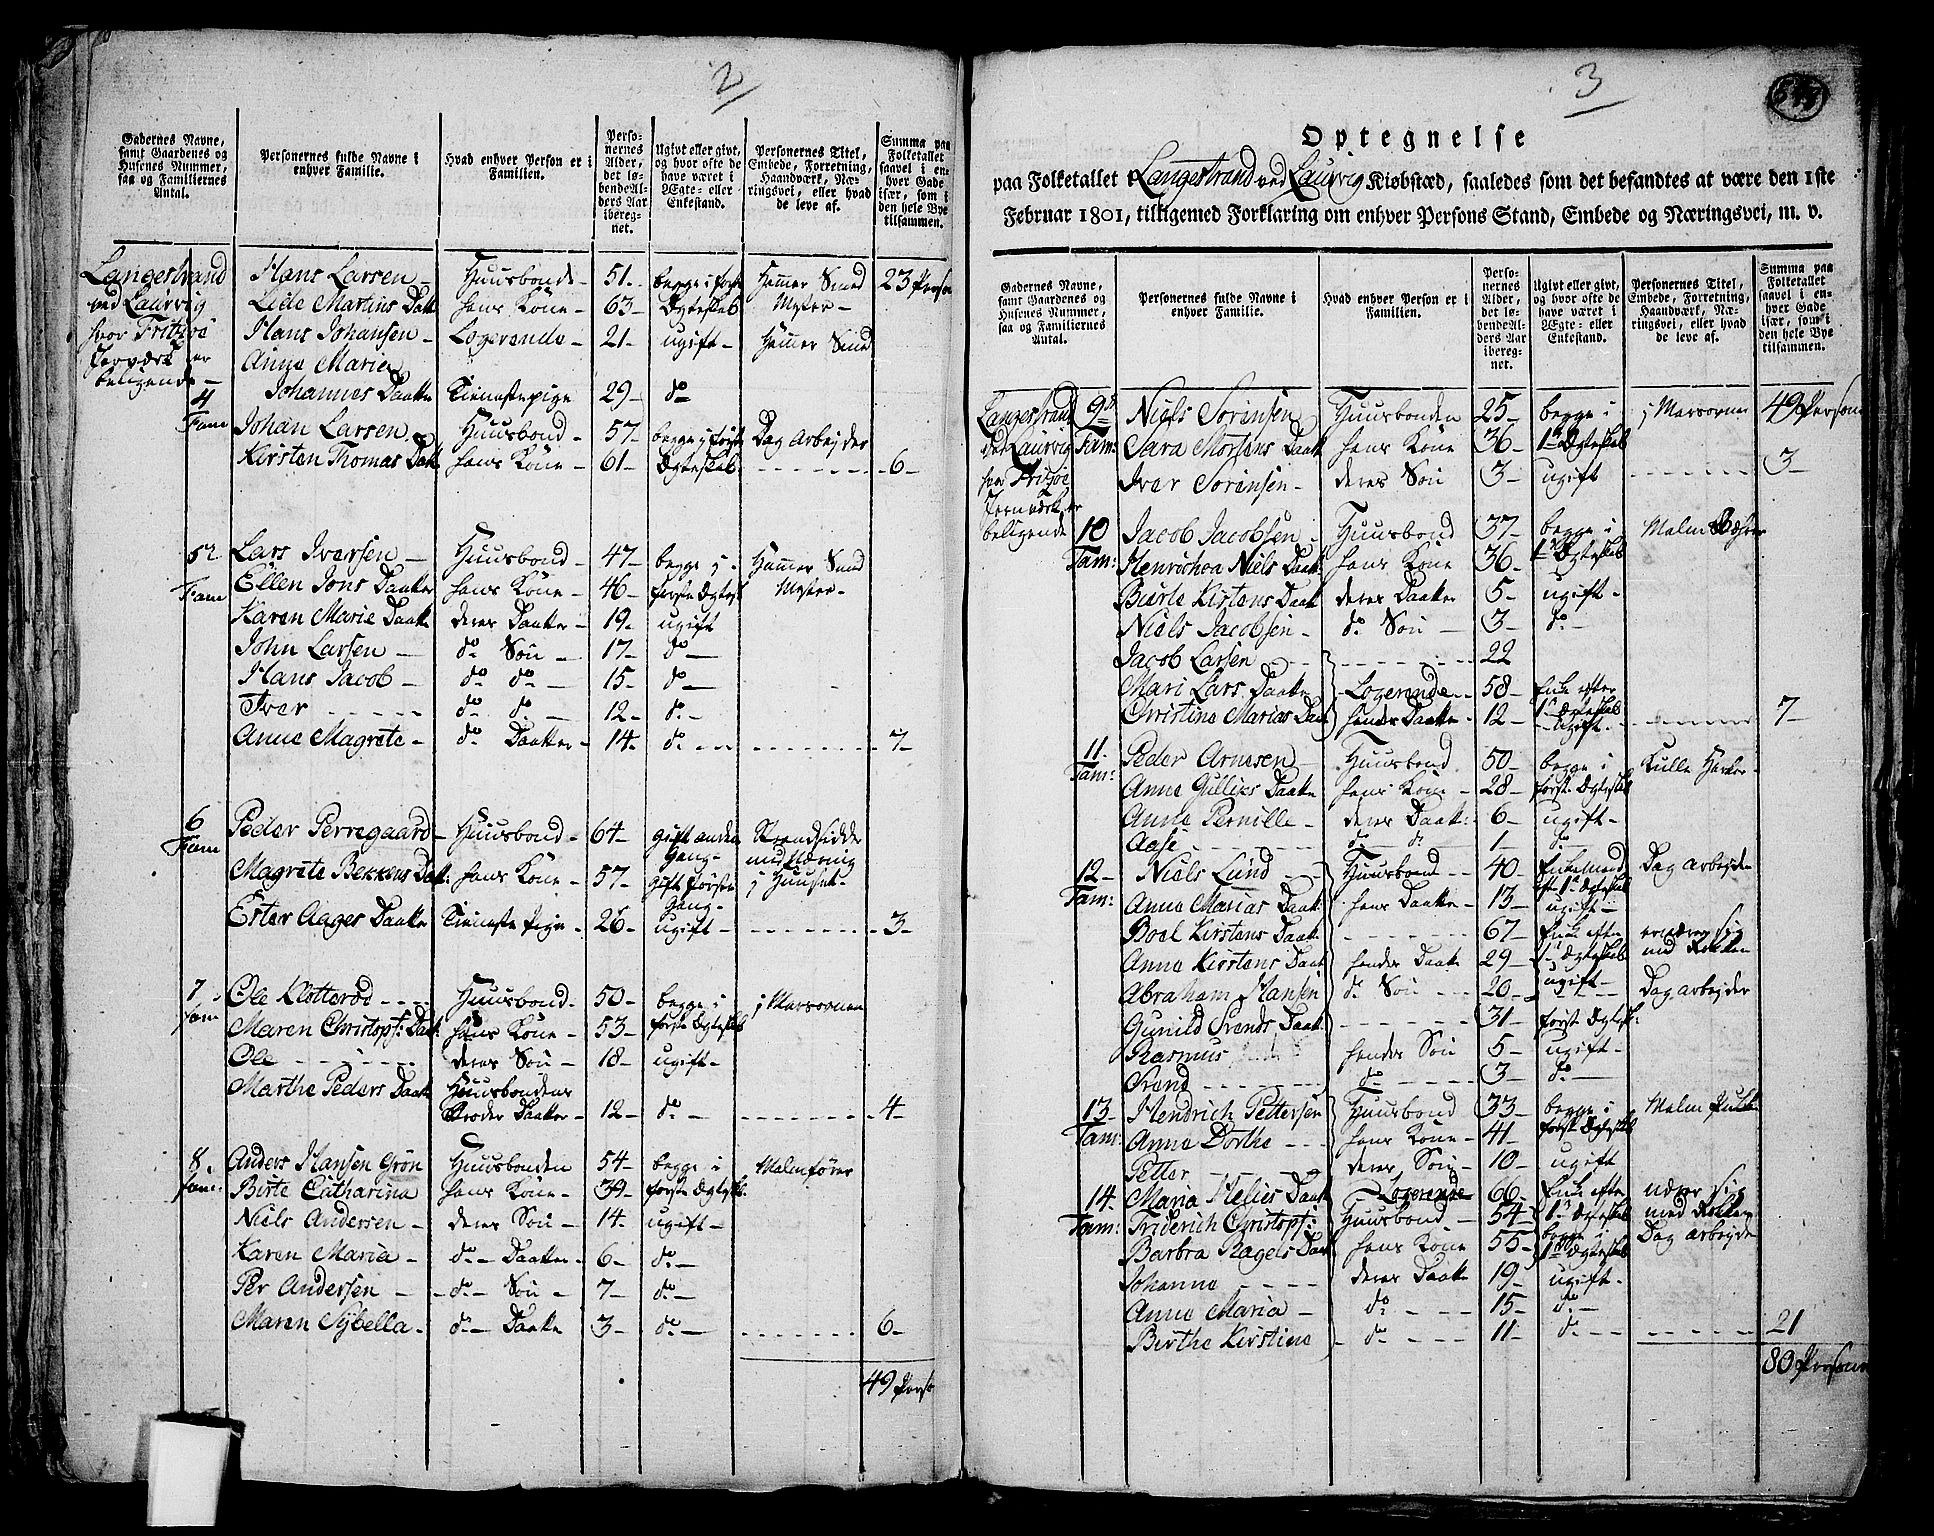 2
Gadernes Navne, samt Gaardenes og Husenes Nummer, saa og Familiernes Antal.
Personernes fulde Navne i enhver Familie.
Hvad enhver Person er i Familien.
Personernes Alder, det løbende Alders Aar iberegnet.
Ugivt eller givt, og hvor ofte de have været i Ægte- eller Enkestand.
Personernes Titel, Embede, Forretning, Haandværk, Næringsvei, eller hvad de leve af.
Summa paa Folketallet saavel i enhver Gade især, som i den hele Bye tilsammen.
Langestrand ved Laurvig hvor Fritzøe Jernværk er beligende
Hans Larsen Huusbonde 51 begge i første Ægteskab Hammer Smed Mester 23
Lide Martins Daatter hans Kone 63
Hans Johansen Logerende 21 ugift Hammer Smed
Anne Maria
Johannes Daatter Tienestepige 29 do
4 Fam
Johan Larsen Huusbond 57 begge i første Dag Arbejder
Kirsten Thomas Daat hans Kone 61 Ægteskab 6
5te Fam
Lars Iversen Huusbond 47 begge i Hammer Smed
Ellen Jons Daatter hans Kone 46 første Ægtesk Mester
Karen Marie Daatt deres Daatter 19 ugift
John Larsen do Søn 17 do
Hans Jacob do do 15 do
Iver do do 12 do
Anne Magrete do Daatter 14 do 7
6 Fam
Peder Perregaard Huusbond 64 gift anden Gang
Magrete Bekkens Dat hans Kone 57 gift første Gang i Huuset
Ester Aages Daatter Tieneste Pige 26 ugift 3
7 Fam
Ole Klotterød Huusbond 50 begge i j Masovnen
Maren Christophs: Daat hans Kone 53 første Ægteskab
Ole deres Søn 18 ugift
Marthe Peders Daatt Huusbondens
Broder Daatter 12 do 4
8 Fam:
Anders Hansen Grøn Huusbonden 54 begge i Malmfører
Birte Catharina hans Kone 39 første Ægtesk:
Niels Andersen deres Søn 14 ugift
Karen Maria do Daatter 6 do
Per Andersen do Søn 7 do
Maren Sybella do Daatte 3 do 6
49
3
Optegnelse
paa Folketallet i Langestrand ved Laurvig Kiøbstæd, saaledes som det befandtes at være den 1ste
Februar 1801, tilligemed Forklaring om enhver Persons Stand, Embede og Næringsvei, m. v.
Gadernes Navne, samt Gaardenes og Husenes Nummer, saa og Familiernes Antal.
Personernes fulde Navne i enhver Familie.
Hvad enhver Person er i Familien.
Personernes Alder, det løbende Alders Aar iberegnet.
Ugivt eller givt, og hvor ofte de have været i Ægte- eller Enkestand.
Personernes Titel, Embede, Forretning, Haandværk, Næringsvei, eller hvad de leve af.
Summa paa Folketallet saavel i enhver Gade især, som i den hele Bye tilsammen.
Langestrand ved Laurvig hvor Fritzøe Jernværk er beligende
9de Fam:
Niels Sørensen Huusbonden 25 begge i j Masovne 49 Person
Sara Mortens Daatt hans Kone 36 1te Ægteskab
Iver Sørensen deres Søn 3 ugift 3
10 Fam:
Jacob Jacobsen Huusbond 37 begge i
Henrichea Niels Daat hans Kone 36 1te Ægteskab
Biørte Kirstens Daatt deres Daatter 5 ugift
Niels Jacobsen do Søn 3 do
Jacob Larsen 22
Mari Lars Daatter Logerende 58 Enke efter
Christine Marias Daat hendes Daatter 12 1te Ægteskab ugift 7
11 Fam:
Peder Arnesen Huusbond 50 begge i Kulle
Anne Gulliks Daatte hans Kone 28 første Ægteskab
Anne Pernille deres Daatt: 6 ugift
Aase do do 1 do
12 Fam:
Niels Lund Huusbond 40 Enkemand Dag arbejder
Anne Marias Daat: hans Daatter 13 ugift
Boel Kirstens Daatt 67 Enke efte ernærer sig
Anne Kirstens Daat hendes Daatte 29 1te Ægteskab med Rokken
Abraham Hansen do Søn 20 ugift Dag arbejder
Gunild Svends Daatt 31 først Ægtesk:
Rasmus hendes Søn 5 ugift
Svend do 3 do
13 Fam:
Hendrich Pettersen Huusbond 33 begge i Malm
Anne Dorthe hans Kone 41 først Ægteskab
Petter deres Søn 10 ugift
14 Fam:
Maria Daatt Logerende 66 Enke efte nærer sig
Friderich Christophs: Huusbond 54 1te Ægteskab med Rokken
Barbra Ragels Daat hans Kone 55 begge i 1te Ægteskab Dag arbejder
Johanne deres Daatte 19 ugift
Anne Maria do 15 do
Birthe Kirstine do 11 do 21
80 Personer